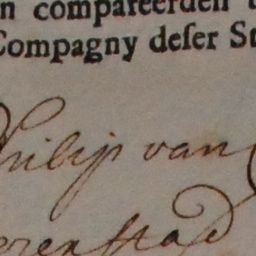 n compareerden
Compagny deser St
Philip van
erenstad